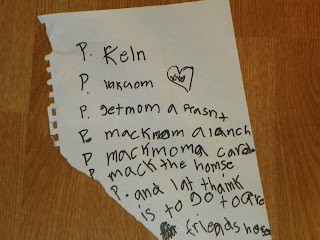 P. Keln
P. vakuom
P. getmom a prasnt
P. mackmom a lanch
P mackmom a carde
P. mack the homse
P. and lat thamk
is to go to are
friends hose